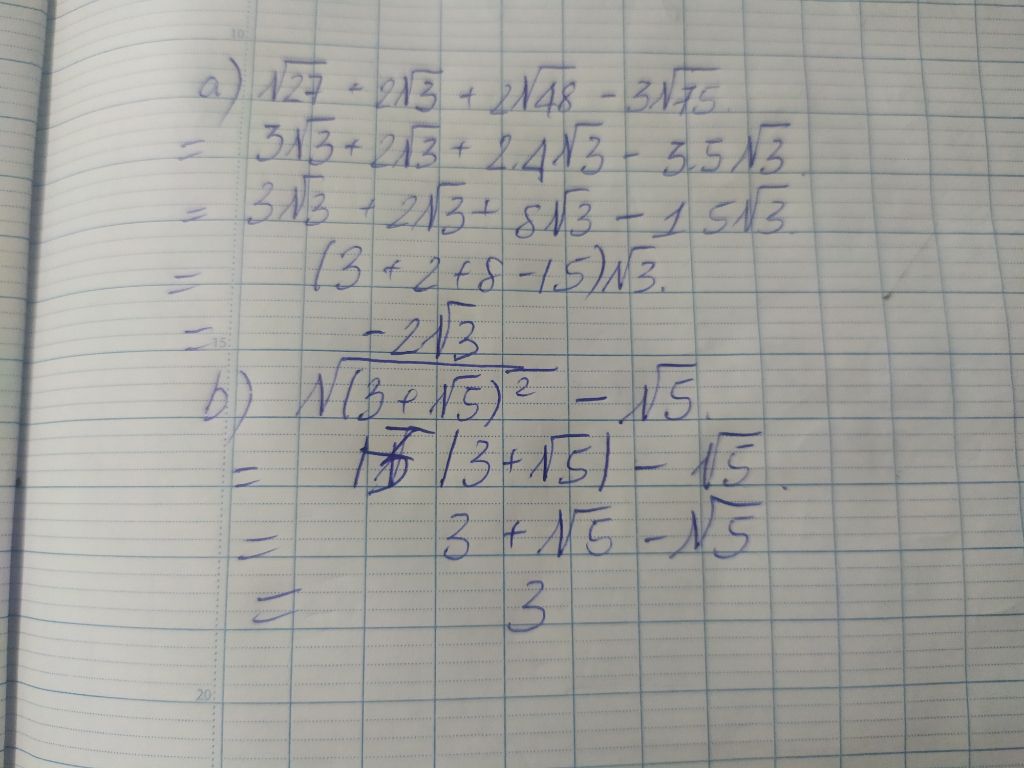 a) √27 - 2√3 + 2√48 - 3√75
= 3√3 + 2√3 + 2.4√3 - 3.5√3
= 3√3 + 2√3 + 8√3 - 15√3.
= (3 + 2 + 8 - 15)√3.
= -2√3
b) √(3 + √5)² - √5.
= |3 + √5| - √5.
= 3 + √5 - √5
= 3
10
15
20